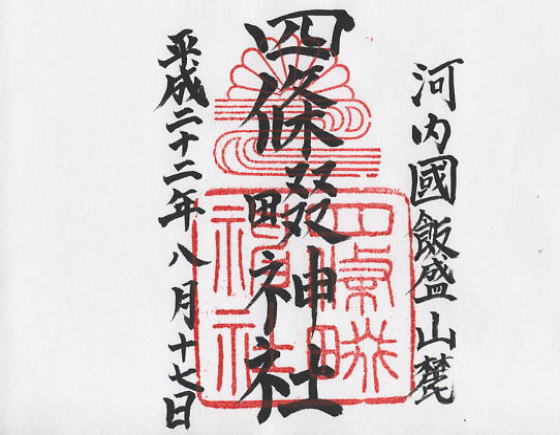 河内國飯盛山麓
四條畷神社
平成二十二年八月十七日
四條畷
神社